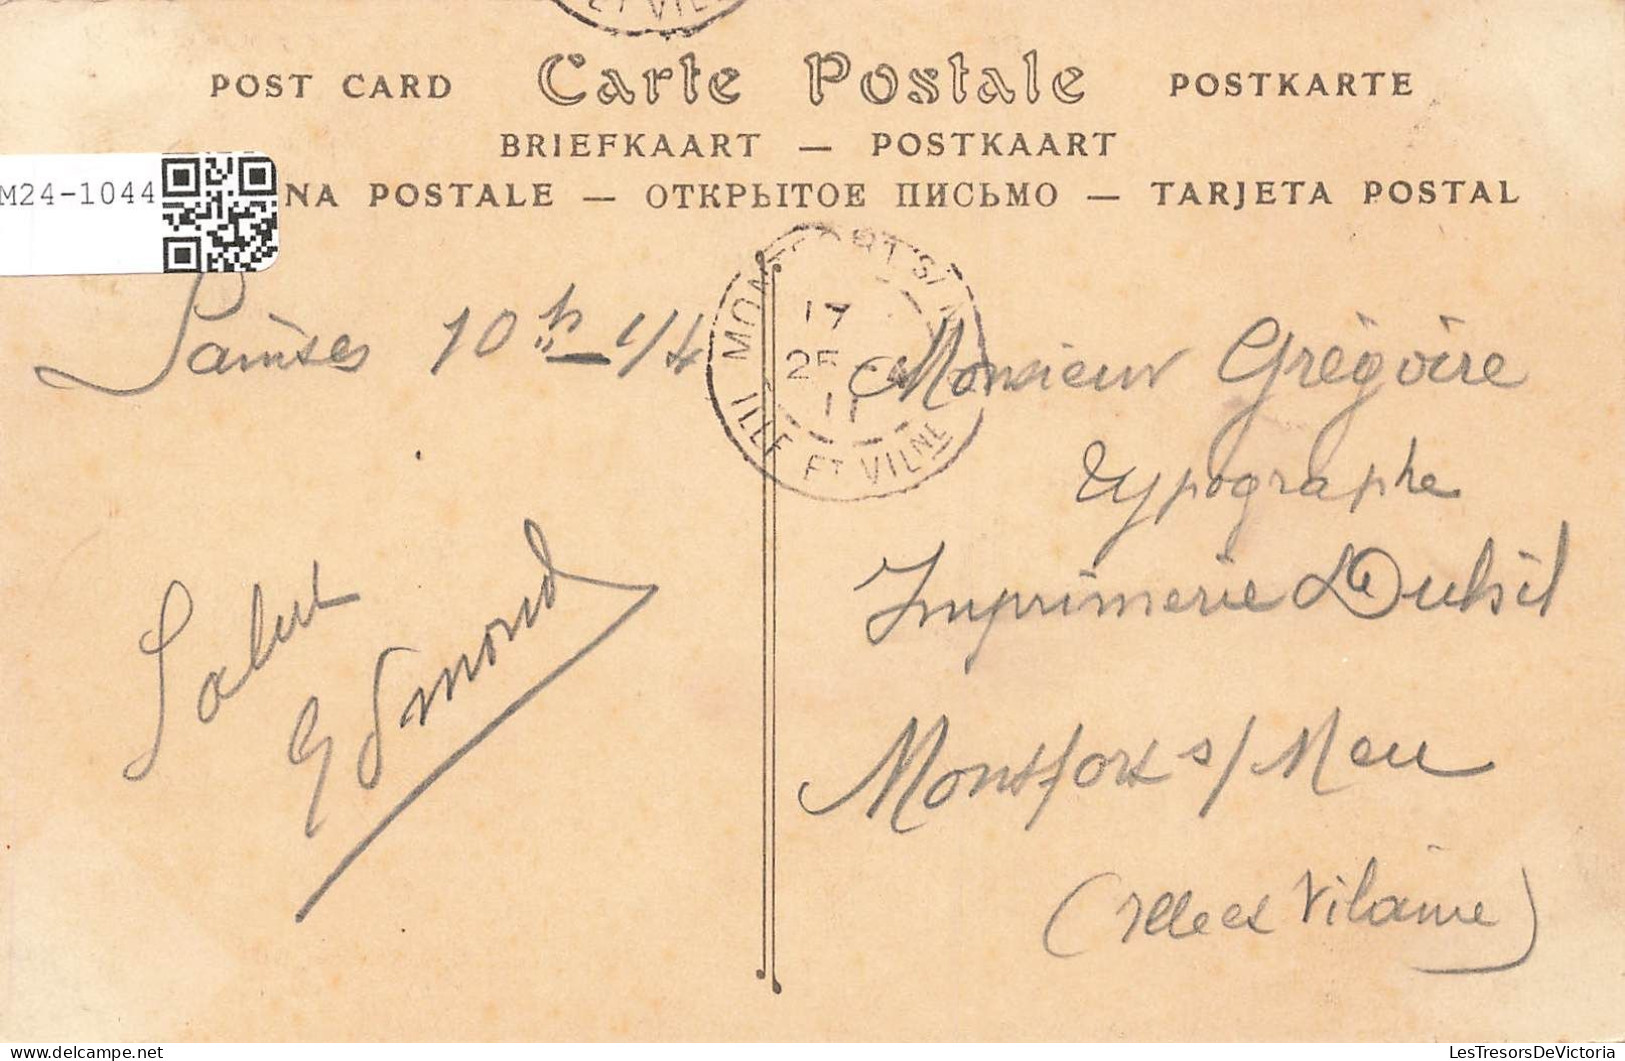 ET VIL
POST CARD Carte Postale POSTKARTE
BRIEFKAART — POSTKAART
M24-1044
NA POSTALE — ОТКРЫТОЕ ПИСЬМО — TARJETA POSTAL
10 h 1/4
MONTFORT S/ M
17
25
11
ILLE ET VILNE
Monsieur Grégoire
typographe
Imprimerie
Montfort s/ Meu
(Ille et Vilaine)
Salut
LesTresorsDeVictoria